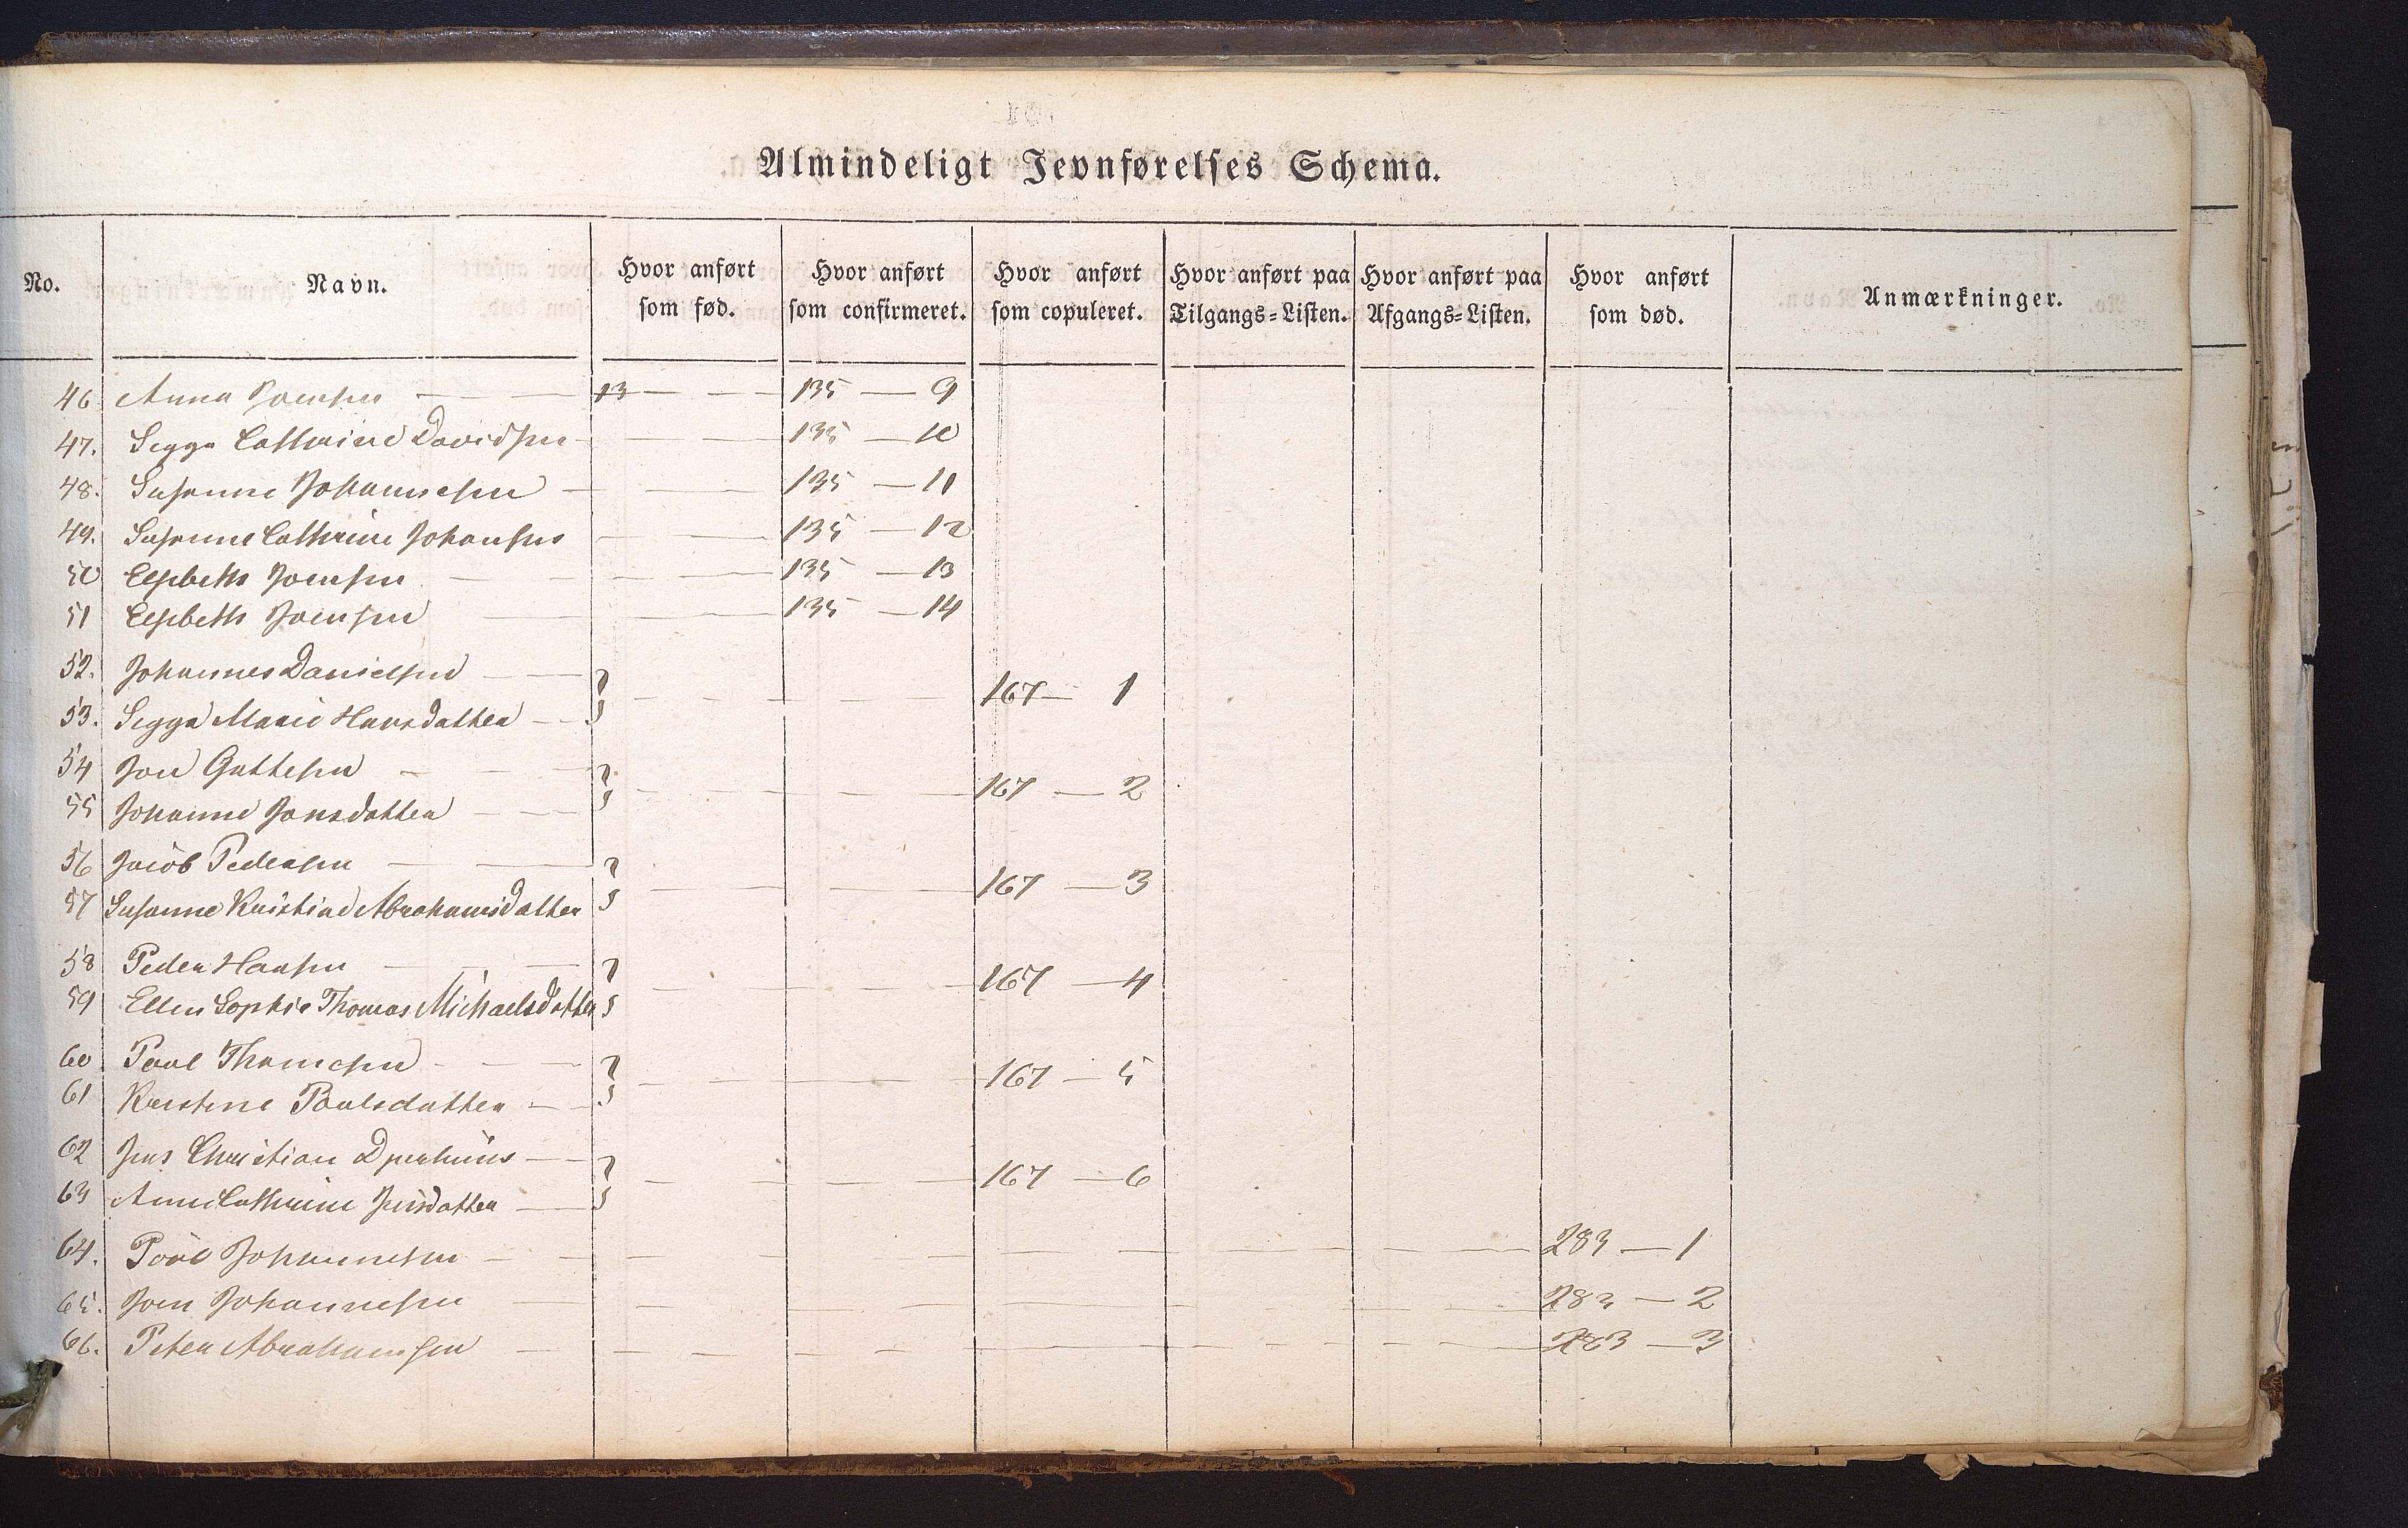 Almindeligt Jevnførelses Schema.
No. Navn. Hvor anført som fød. Hvor anført som confirmeret. Hvor anført som copuleret. Hvor anført paa Tilgangs-Listen. Hvor anført paa Afgangs-Listen. Hvor anført som død. Anmærkninger.
46 Anna Joensen — 13 — — 135 — 9
47. Sigga Cathrine Davidsen — — — 135 — 10
48. Susanne Johannesen — — 135 — 11
49. Susanne Cathrine Johansen — — 135 — 12
50 Elsebeth Joensen — — — 135 — 13
51 Elsebeth Joensen — — 135 — 14
52. Johannes Danielsen — —
167 — 1
53. Sigga Marie Hansdatter — —
54 Jon Guttesen — — —
167 — 2
55 Johanne Jonsdatter — —
56 Jacob Pedersen — —
167 — 3
57 Susanne Kristine Abrahamsdatter
58 Peder Hansen — — —
167 — 4
59 Ellen Sophie Thomas Michaelsdatter
60 Poul Thomesen — — —
167 — 5
61 Kirstine Poulsdatter — —
62 Jens Christian Djurhuus — —
167 — 6
63 Anne Cathrine Jensdatter —
64. Poul Johannesen — — 283 — 1
65. Joen Johannesen — — 283 — 2
66. Peter Abrahamsen — — 283 — 3